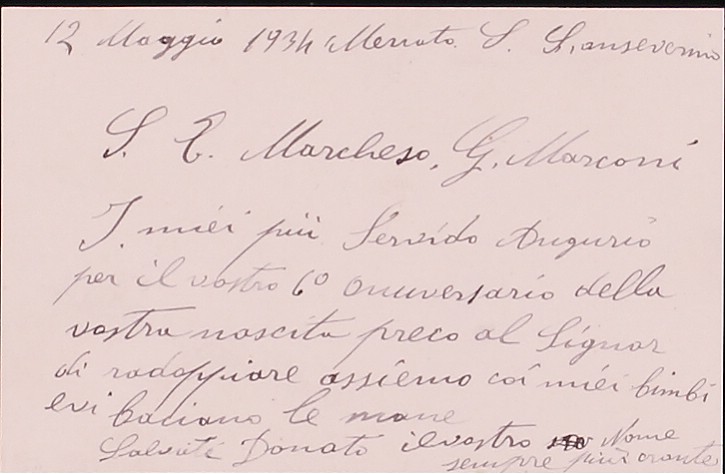 12 Maggio 1934 Mercato S. Sanseverino
S. E. Marcheso, G. Marconi
I miei più Fervido Augurio
per il vostro 60 anniversario della
vostra nascita preco al Signor
di radoppiare assiemo coi miei bimbi
evi baciano le mane
Salvati Donato ilvostro Nome
sempre più